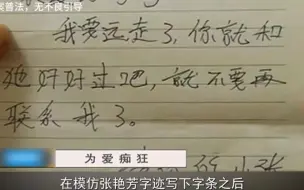 案普法，无不良引导
我要远走了，你就和
她好好过吧，就不要再
联系我了。
为爱痴狂
在模仿张艳芳字迹写下字条之后